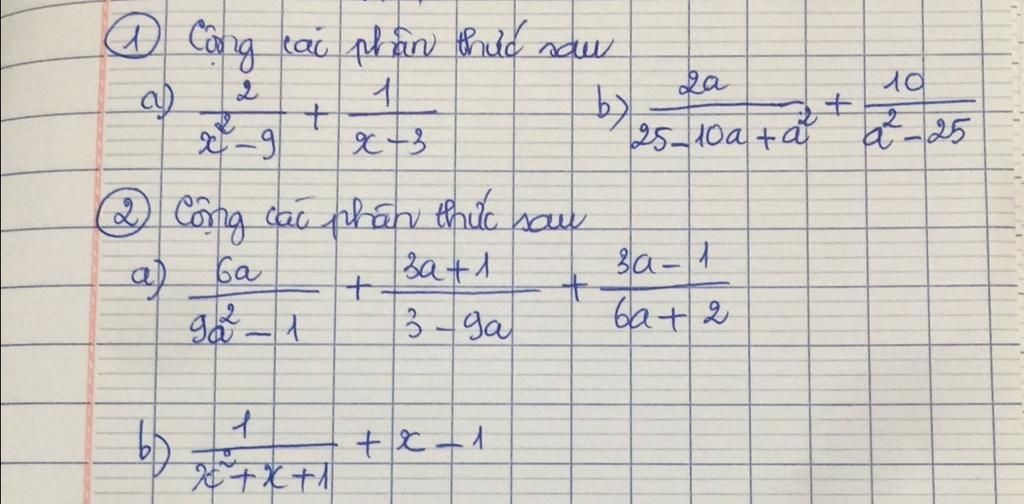 ① Cộng các phân thức sau
a) 2/(x² - 9) + 1/(x - 3) b) 2a/(25 - 10a + a²) + 10/(a² - 25)
② Cộng các phân thức sau
a) 6a/(9a² - 1) + (3a + 1)/(3 - 9a) + (3a - 1)/(6a + 2)
b) 1/(x² + x + 1) + x - 1